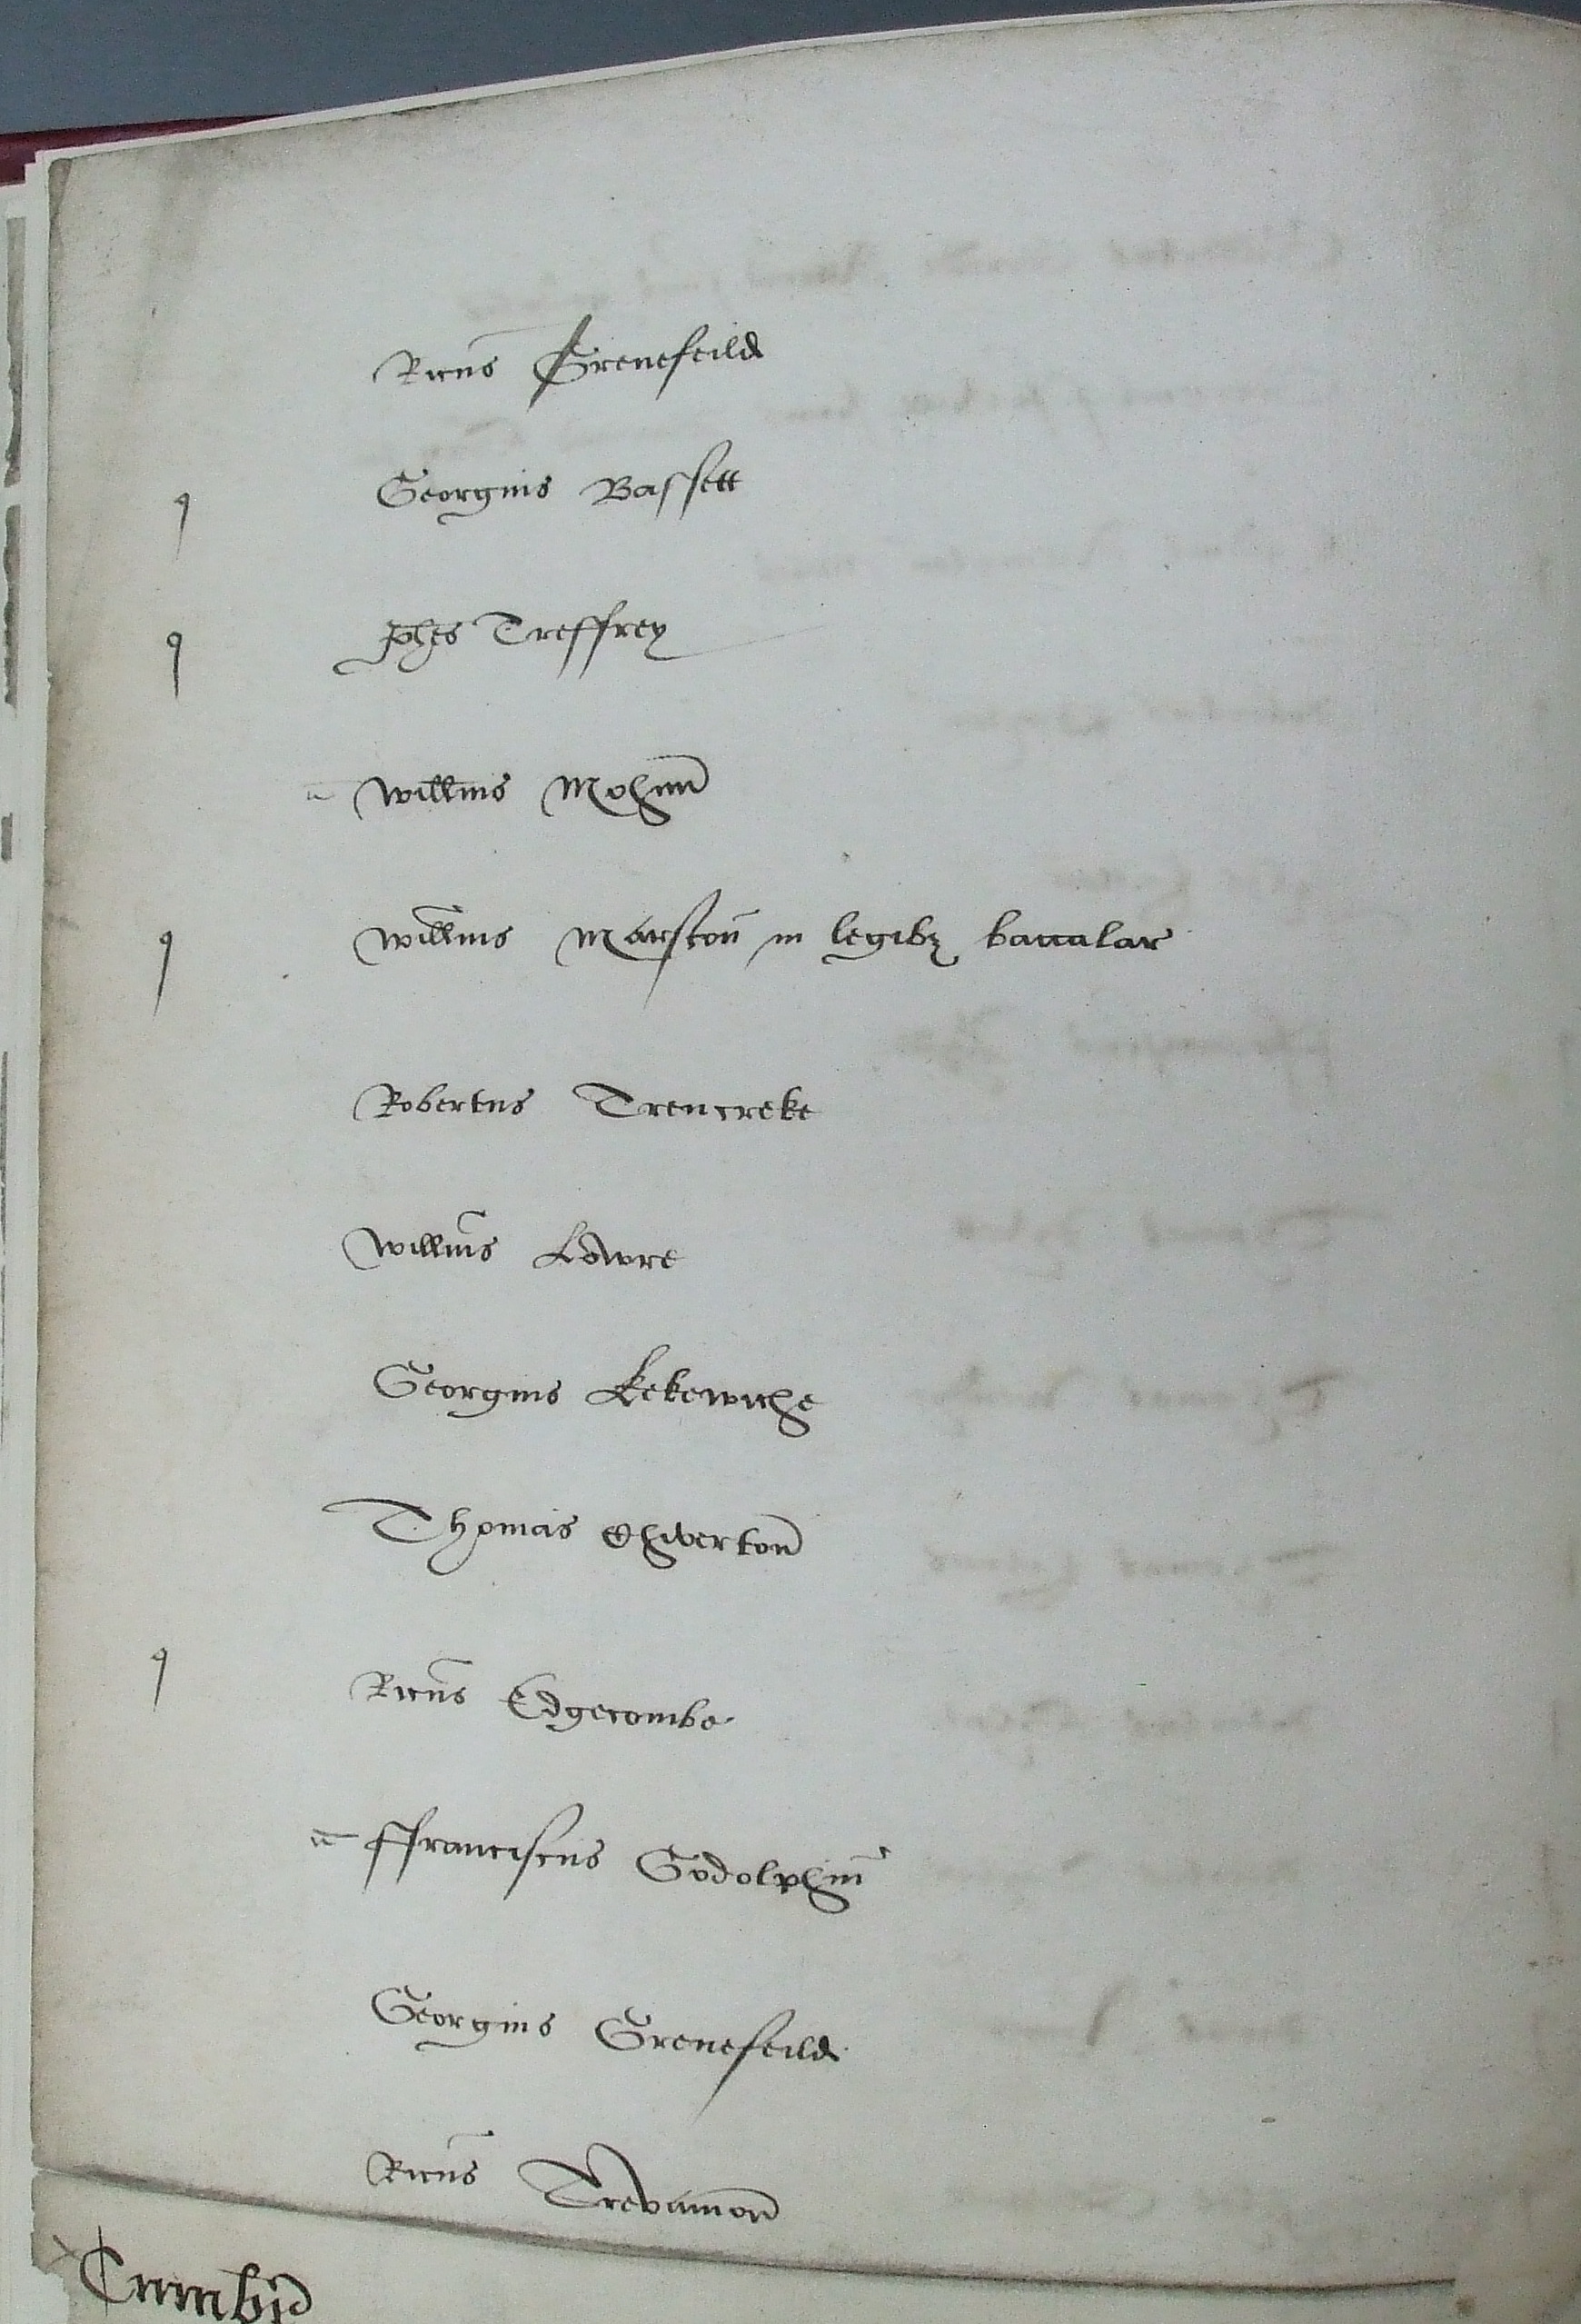 Ricus Grenefeild
q Georgius Bassett
q Johes Treffrey
Willms Mohun
q Willms Marston in legibz baccalar
Robertus Trencreke
Willms Lowre
Georgius Kekewiche
Thomas Chiverton
q Ricus Edgecombe
ffranciscus Godolphin
Georgius Grenefeild
Ricus Trevanion
Cumbr